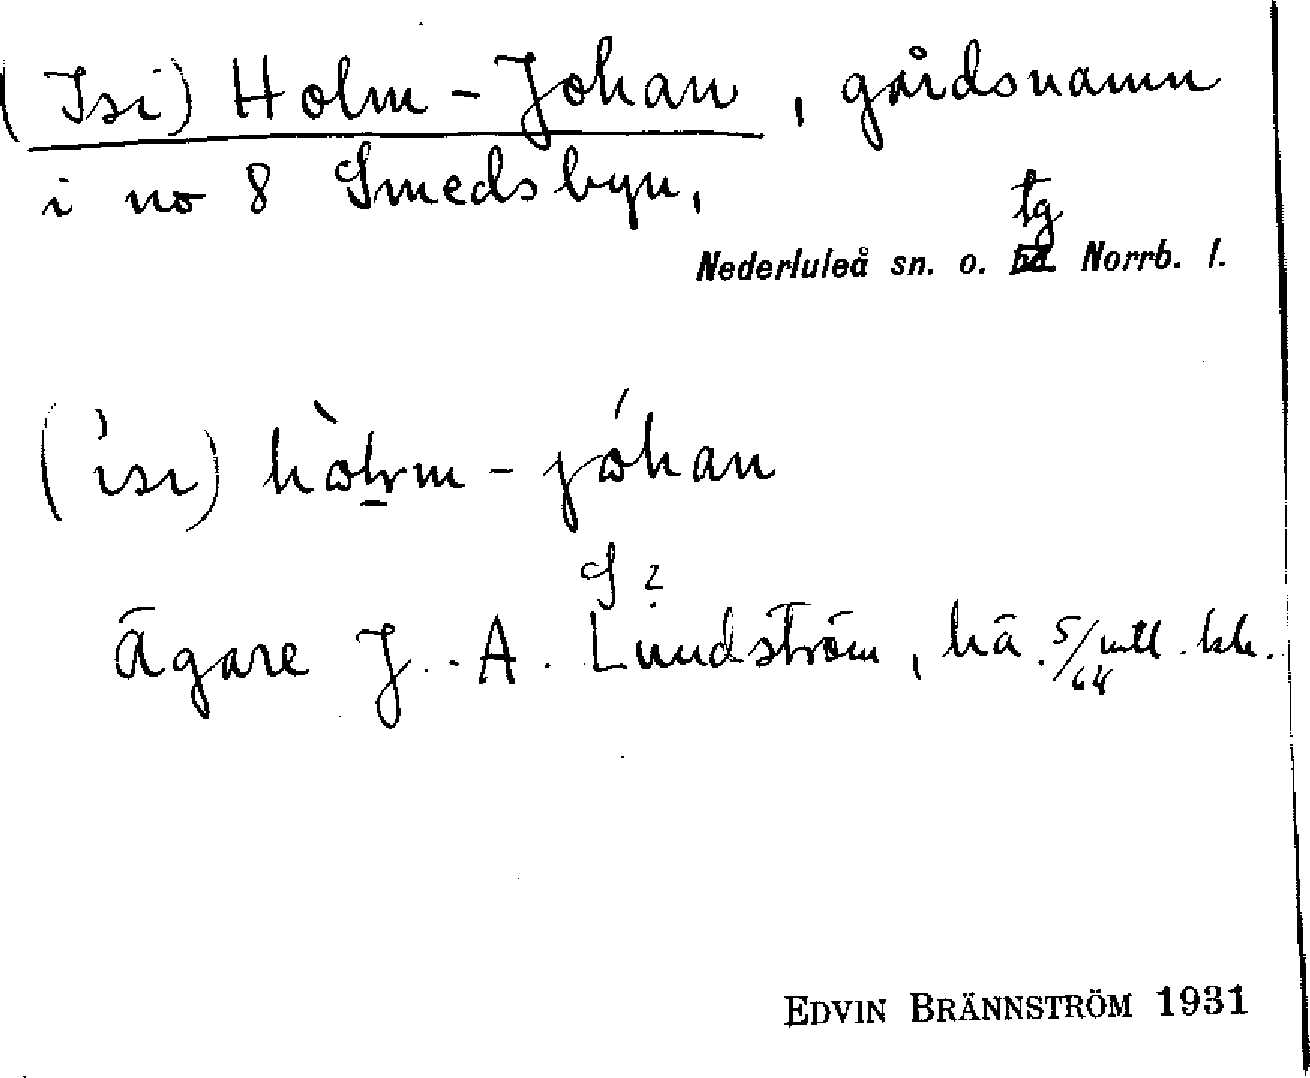 (Isi) Holm-Johan, gårdsnamn
i no 8 Smedsbyn,
tg
Nederluleå sn. o. Norrb. l.
(ìsi) hòlm-jóhan
S ?
Ägare J. A. Lundström, hä. 5/64 mtl.
EDVIN BRÄNNSTRÖM 1931